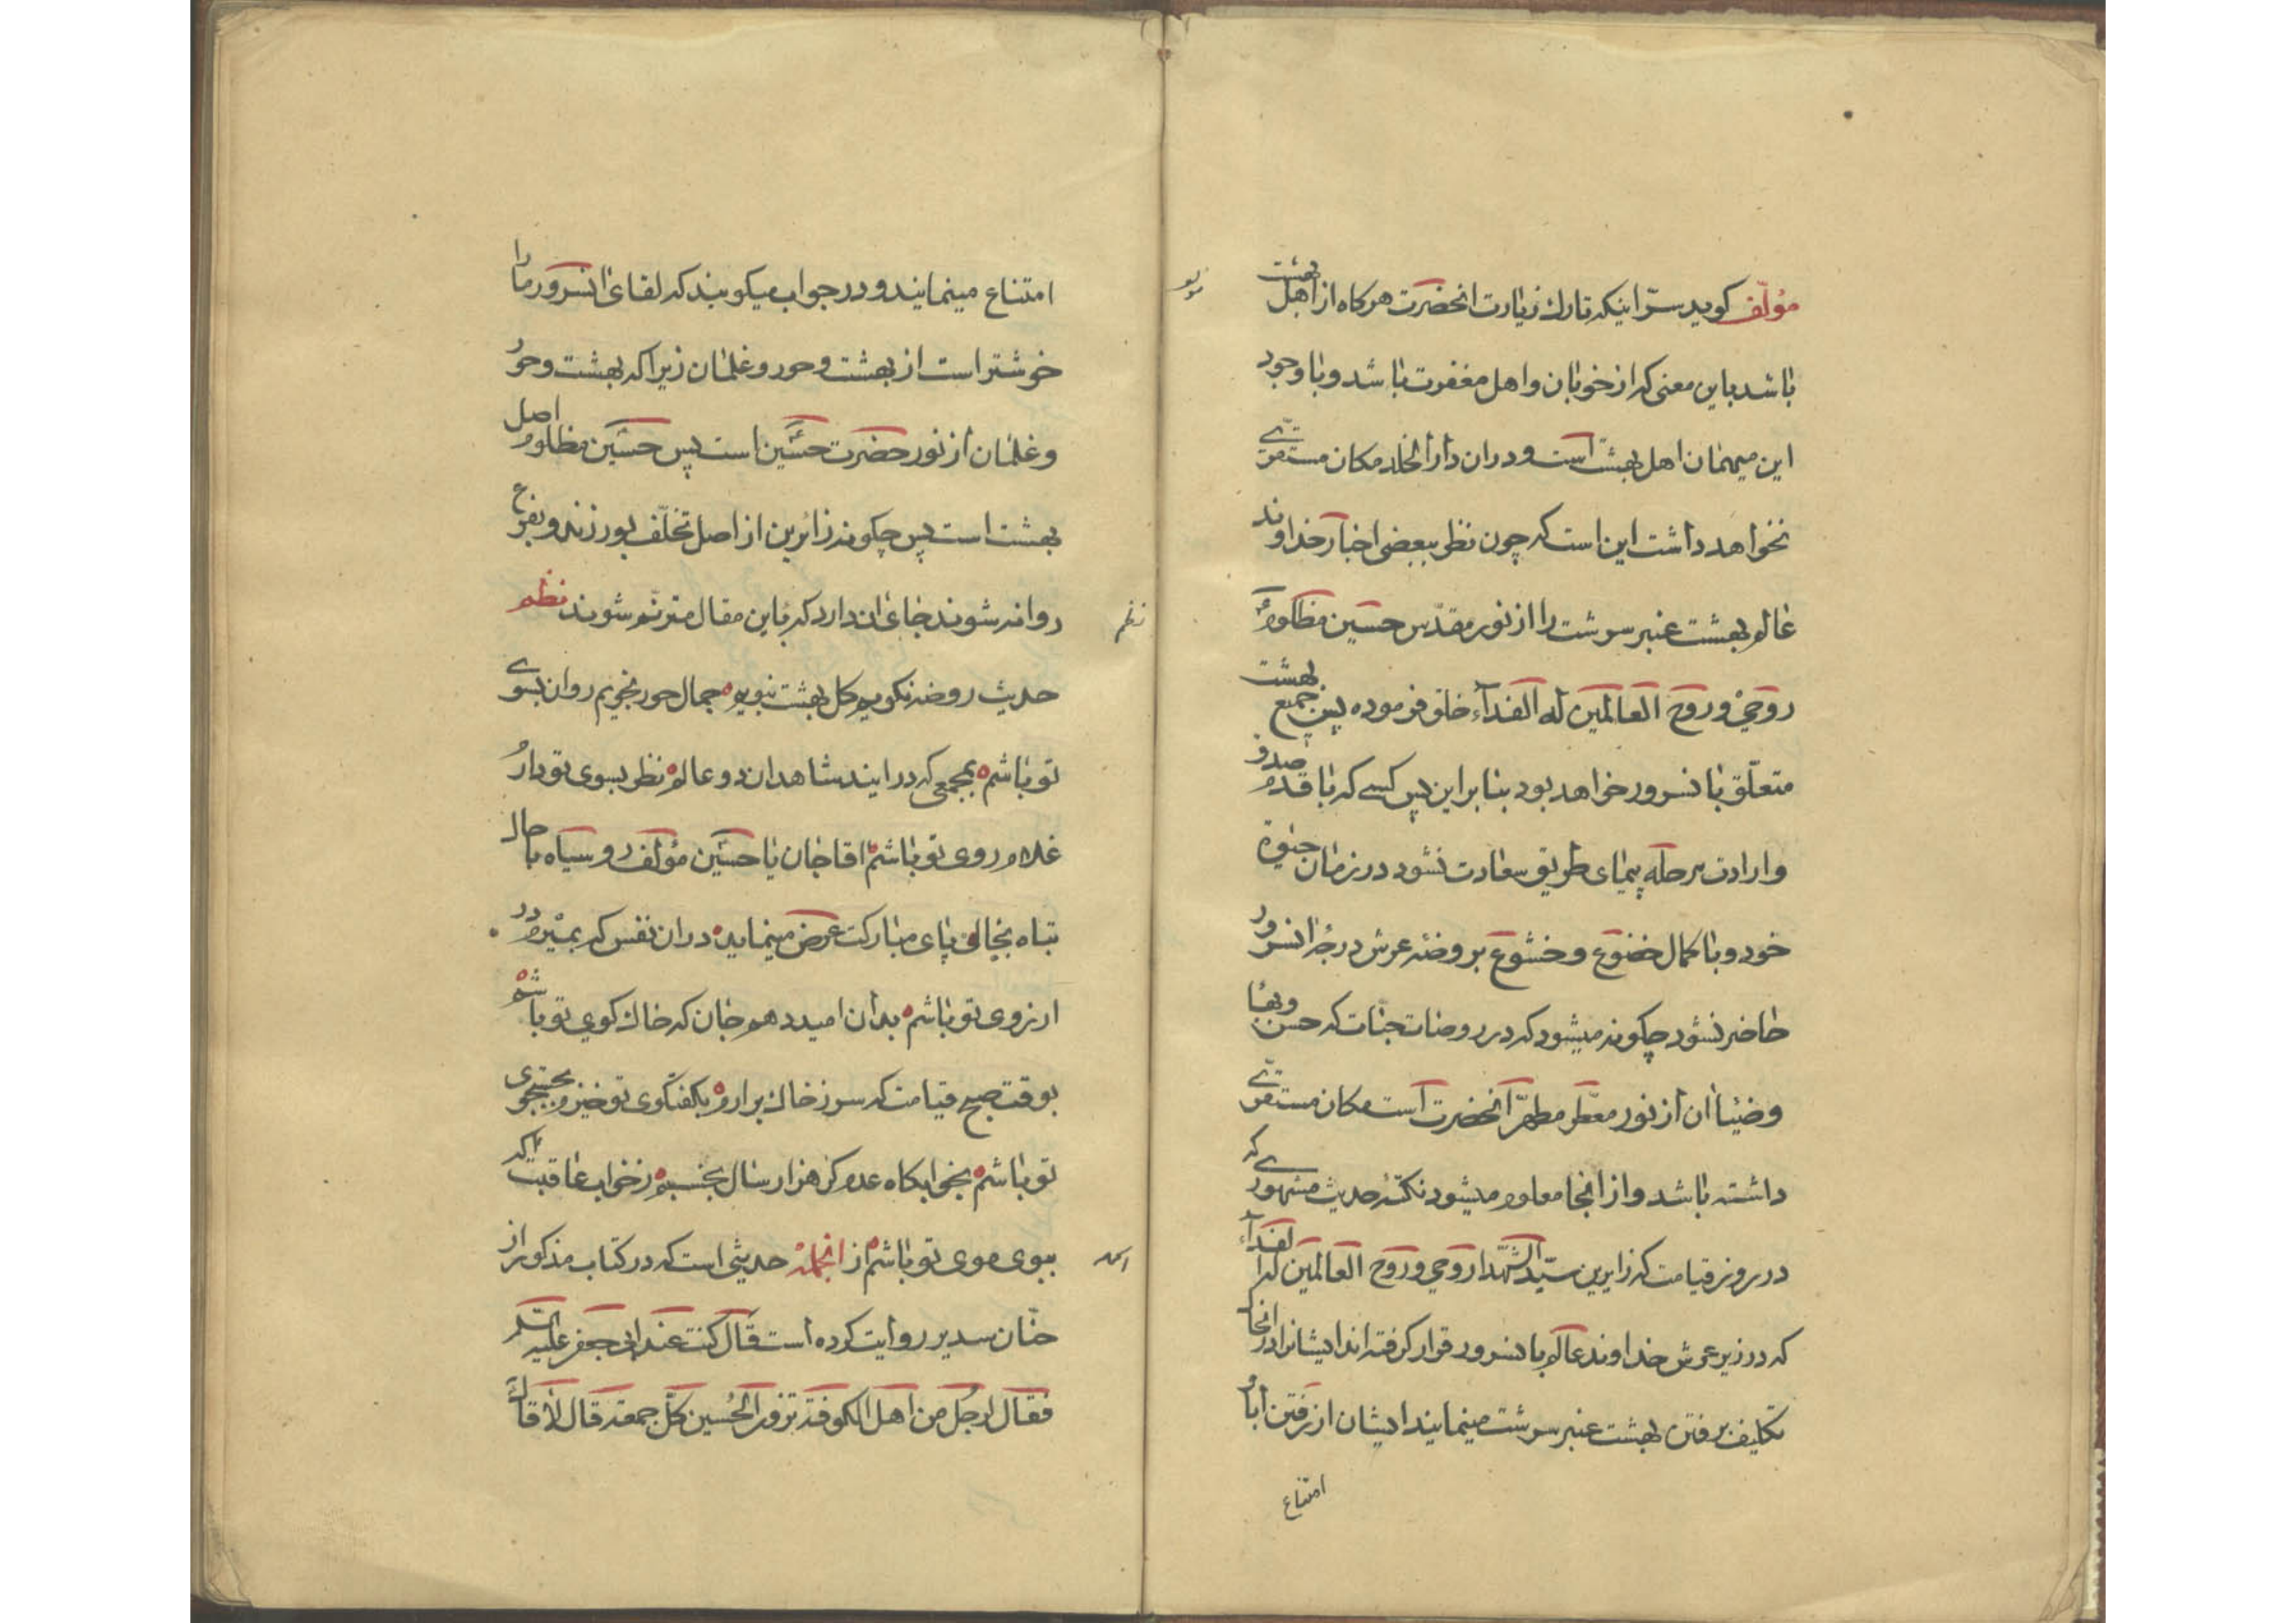 مؤلّف کوید سرّ اینکه تارك زیارت انحضرت هرکاه از اهل بهشت
باشد باین معنی که از خوبان و اهل مغفرت باشد و با وجود
این میهمان اهل بهشت است و در ان دار الخلد مکان مستقرّے
نخواهد داشت این است که چون نظر ببعضی اخبار خداوند
عالم بهشت عنبر سرشت را از نور مقدّس حسین مظلوم
روحي و روح العالمین له الفدآء خلق فرموده پس جمیع بهشت
متعلّق بانسرور خواهد بود بنابراین پس کسے که با قدم صدق
و ارادت مرحله پیمای طریق سعادت نشود در زمان حیوة
خود و با کمال خضوع و خشوع بروضهٔ عرش درجهٔ انسرور
حاضر نشود چکونه میشود که در روضات جنّات که حسن و بها
و ضیاآن از نور معطّر مطهّر انحضرت است مکان مستقرّے
داشته باشد و از انجا معلوم میشود نکتهٔ حدیث مشهورے که
در روز قیامت که زایرین سیّد الشّهدا روحي و روح العالمین له الفدآء
که در زیر عرش خداوند عالم با انسرور قرار کرفته اند ایشانرا در انجا که
تکلیف برفتن بهشت عنبر سرشت مینمایند ایشان از رفتن ابا و
امتناع
امتناع مینمایند و در جواب میکویند که لقای انسرور ما را
خوشتر است از بهشت و حور و غلمان زیرا که بهشت و حور
و غلمان از نور حضرت حسین است پس حسین مظلوم اصل
بهشت است پس چکونه زائرین از اصل تخلّف بورزند و بفرع
روانه شوند جای ان دارد که باین مقال مترنّم شوند نظم
نظم
حدیث روضه نکویم کل بهشت نبویم جمال حور نجویم روان بسوے
تو باشم بمجمعی که در ایند شاهدان دو عالم نظر بسوی تو دارم
غلام روی تو باشم اقا جان یا حسین مؤلف رو سیاه با حال
تباه بخاك پای مبارکت عرض مینماید در ان نفس که بمیرم در
ارزوی تو باشم بدان امید دهم جان که خاك کوی تو باشم
بوقت صبح قیامت که سر ز خاك برارم بکفتکوی تو خیزم بجستجوی
تو باشم بخوابکاه عدم کر هزار سال بخسبم ز خواب عاقبت آکه
ببوی موی تو باشم از انجمله حدیثی است که در کتاب مذکور از
حنّان سدیر روایت کرده است قال کنت عند ابی جعفر علیه السّلم
فقال لرجل من اهل الکوفة تزور الحُسین کلّ جمعة قال لا قال